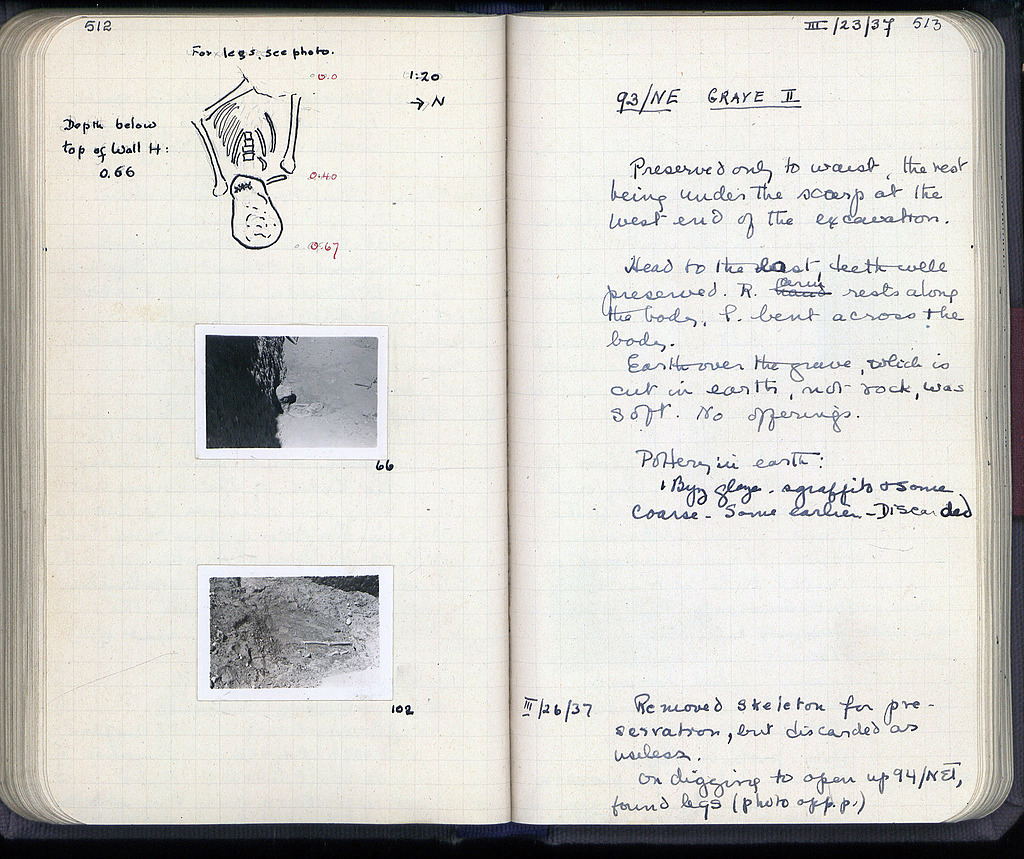 512
For legs, see photo.
0.0
1:20
→ N
Depth below
top of Wall H:
0.66
0.40
0.67
66
102
III/23/37 513
93/NE GRAVE II
Preserved only to waist, the rest
being under the scarp at the
west end of the excavation.
Head to the East, teeth well
preserved. R. arm rests along
the body, L. bent across the
body.
Earth over the grave, which is
cut in earth, not rock, was
soft. No offerings.
Pottery in earth:
1 Byz glaze - sgraffito & some
coarse - Some earlier - Discarded
III/26/37 Removed skeleton for pre-
servation, but discarded as
useless.
On digging to open up 94/NE,
found legs (photo opp. p.)